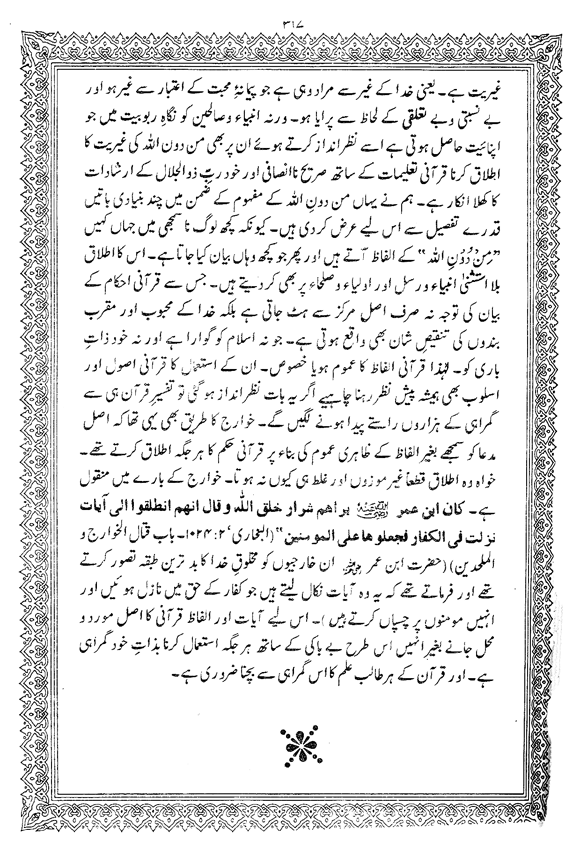 ۳۱۷
غیریت ہے۔ یعنی خدا کے غیر سے مراد وہی ہے جو پیمانۂ محبت کے اعتبار سے غیر ہو اور
بے نسبتی و بے تعلقی کے لحاظ سے پرایا ہو۔ ورنہ انبیاء و صالحین کو نگاہِ ربوبیت میں جو
اپنائیت حاصل ہوتی ہے اسے نظر انداز کرتے ہوئے ان پر بھی من دون اللہ کی غیریت کا
اطلاق کرنا قرآنی تعلیمات کے ساتھ صریح ناانصافی اور خود ربِ ذوالجلال کے ارشادات
کا کھلا انکار ہے۔ ہم نے یہاں من دونِ اللہ کے مفہوم کے ضمن میں چند بنیادی باتیں
قدرے تفصیل سے اس لیے عرض کر دی ہیں۔ کیونکہ کچھ لوگ ناسمجھی میں جہاں کہیں
”مِنْ دُوْنِ اللہ“ کے الفاظ آتے ہیں اور پھر جو کچھ وہاں بیان کیا جاتا ہے۔ اس کا اطلاق
بلا استثنیٰ انبیاء و رسل اور اولیاء و صلحاء پر بھی کر دیتے ہیں۔ جس سے قرآنی احکام کے
بیان کی توجہ نہ صرف اصل مرکز سے ہٹ جاتی ہے بلکہ خدا کے محبوب اور مقرب
بندوں کی تنقیصِ شان بھی واقع ہوتی ہے۔ جو نہ اسلام کو گوارا ہے اور نہ خود ذاتِ
باری کو۔ لہٰذا قرآنی الفاظ کا عموم ہو یا خصوص۔ ان کے استعمال کا قرآنی اصول اور
اسلوب بھی ہمیشہ پیش نظر رہنا چاہیے اگر یہ بات نظر انداز ہو گئی تو تفسیرِ قرآن ہی سے
گمراہی کے ہزاروں راستے پیدا ہونے لگیں گے۔ خوارج کا طریق بھی یہی تھا کہ اصل
مدعا کو سمجھے بغیر الفاظ کے ظاہری عموم کی بناء پر قرآنی حکم کا ہر جگہ اطلاق کرتے تھے۔
خواہ وہ اطلاق قطعاً غیر موزوں اور غلط ہی کیوں نہ ہوتا۔ خوارج کے بارے میں منقول
ہے۔ کان ابن عمر رضی اللہ عنہ یراهم شرار خلق اللّٰہ و قال انهم انطلقوا الی آیات
نزلت فی الکفار فجعلوها علی المومنین“ (البخاری‘ ۲:۱۰۲۴۔ باب قتال الخوارج و
الملحدین) (حضرت ابن عمر رضی اللہ عنہ ان خارجیوں کو مخلوقِ خدا کا بد ترین طبقہ تصور کرتے
تھے اور فرماتے تھے کہ یہ وہ آیات نکال لیتے ہیں جو کفار کے حق میں نازل ہوئیں اور
انہیں مومنوں پر چسپاں کرتے ہیں)۔ اس لیے آیات اور الفاظ قرآنی کا اصل مورد و
محل جانے بغیر انہیں اس طرح بے باکی کے ساتھ ہر جگہ استعمال کرنا بذاتِ خود گمراہی
ہے۔ اور قرآن کے ہر طالب علم کا اس گمراہی سے بچنا ضروری ہے۔